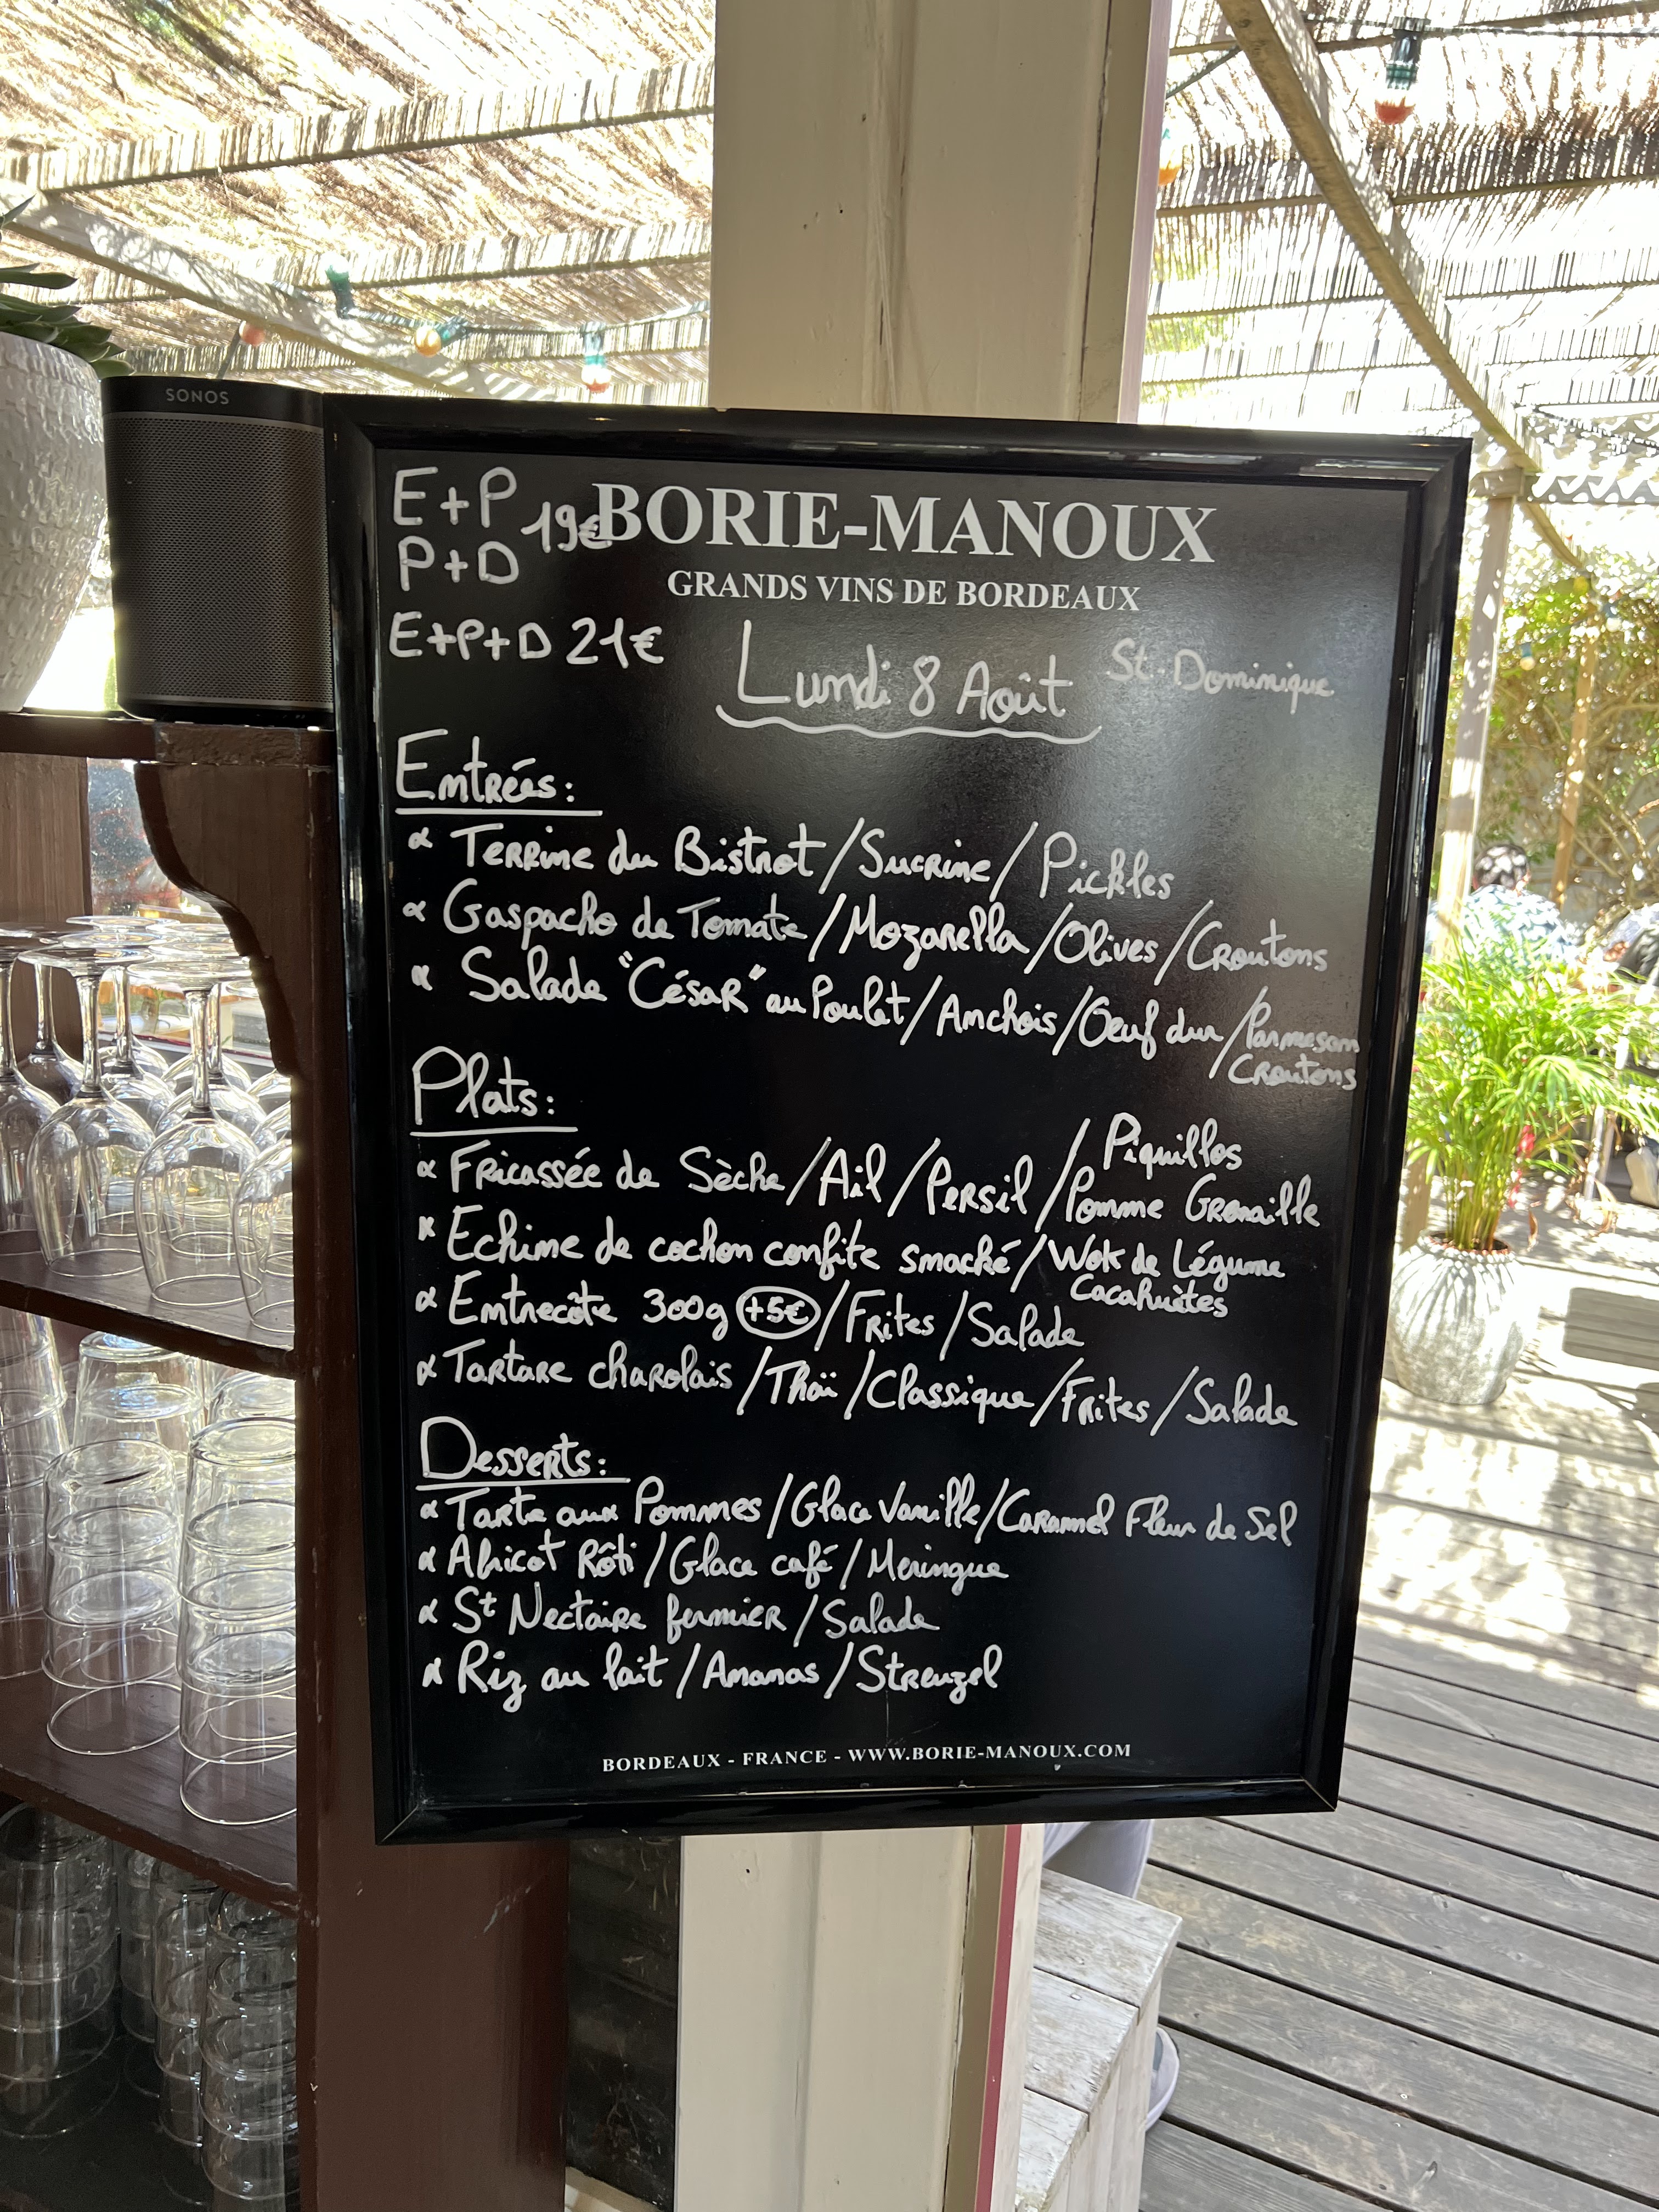 SONOS
E+P 19€
P+D
E+P+D 21€
BORIE-MANOUX
GRANDS VINS DE BORDEAUX
Lundi 8 Août St. Dominique
Entrées:
Terrine du Bistrot / Sucrine / Pickles
Gaspacho de Tomate / Mozarella / Olives / Croutons
Salade "César" au Poulet / Anchois / Oeuf dur / Parmesan
Croutons
Plats:
Fricassée de Sèche / Ail / Persil / Piquillos
/ Pomme Grenaille
Echine de cochon confite smocké / Wok de Légume
Cacahuètes
Entrecôte 300g +5€ / Frites / Salade
Tartare charolais / Thaï / Classique / Frites / Salade
Desserts:
Tarte aux Pommes / Glace Vanille / Caramel Fleur de Sel
Abricot Rôti / Glace café / Meringue
St Nectaire fermier / Salade
Riz au lait / Ananas / Streuzel
BORDEAUX - FRANCE - WWW.BORIE-MANOUX.COM